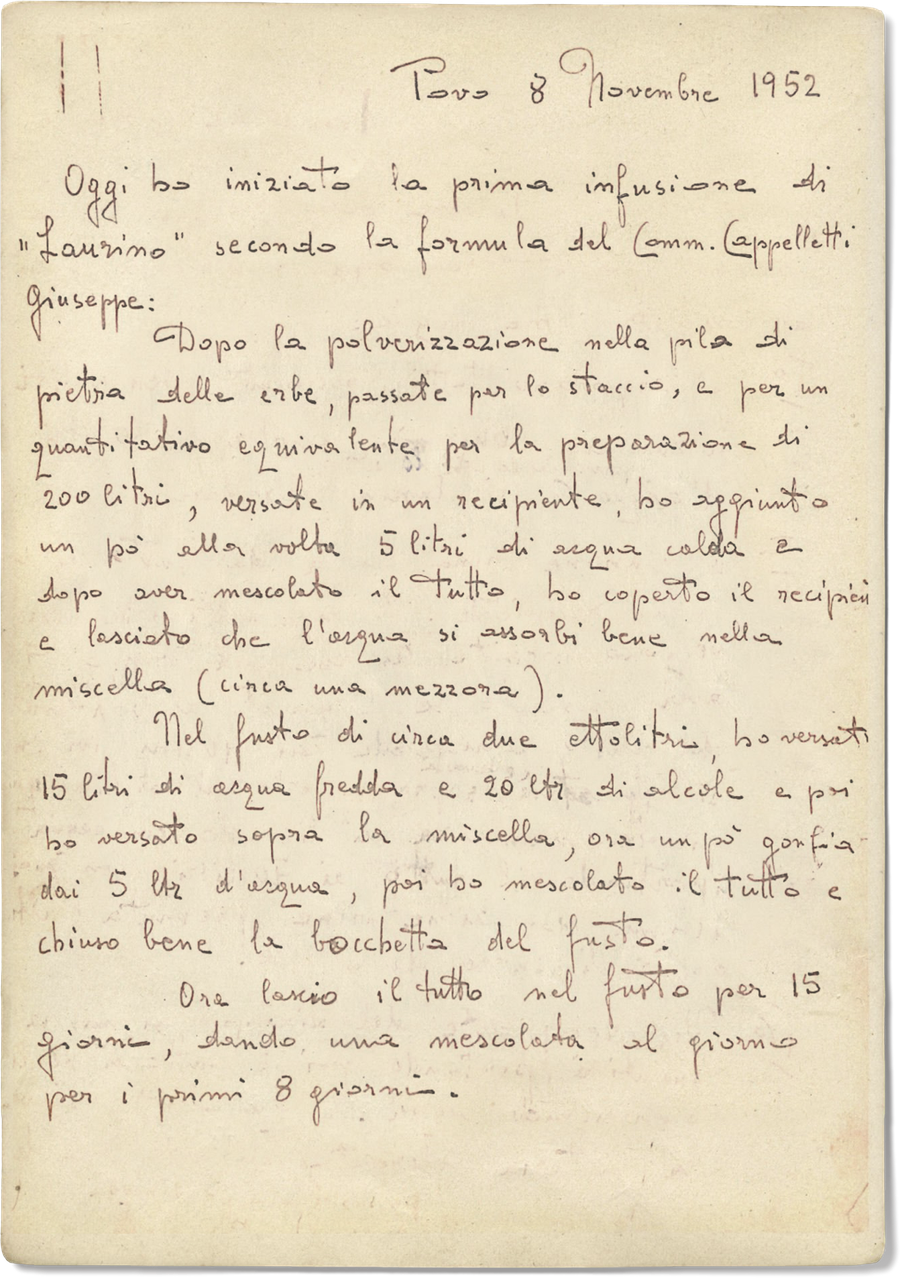 Povo 8 Novembre 1952
Oggi ho iniziato la prima infusione di
"Laurino" secondo la formula del Comm. Cappelletti
Giuseppe:
Dopo la polverizzazione nella pila di
pietra delle erbe, passate per lo staccio, e per un
quantitativo equivalente per la preparazione di
200 litri, versate in un recipiente, ho aggiunto
un pò alla volta 5 litri di acqua calda e
dopo aver mescolato il tutto, ho coperto il recipien
e lasciato che l'acqua si assorbi bene nella
miscella (circa una mezzora).
Nel fusto di circa due ettolitri, ho versat
15 litri di acqua fredda e 20 ltr di alcole e poi
ho versato sopra la miscella, ora un pò gonfia
dai 5 ltr d'acqua, poi ho mescolato il tutto e
chiuso bene la bocchetta del fusto.
Ora lascio il tutto nel fusto per 15
giorni, dando una mescolata al giorno
per i primi 8 giorni.